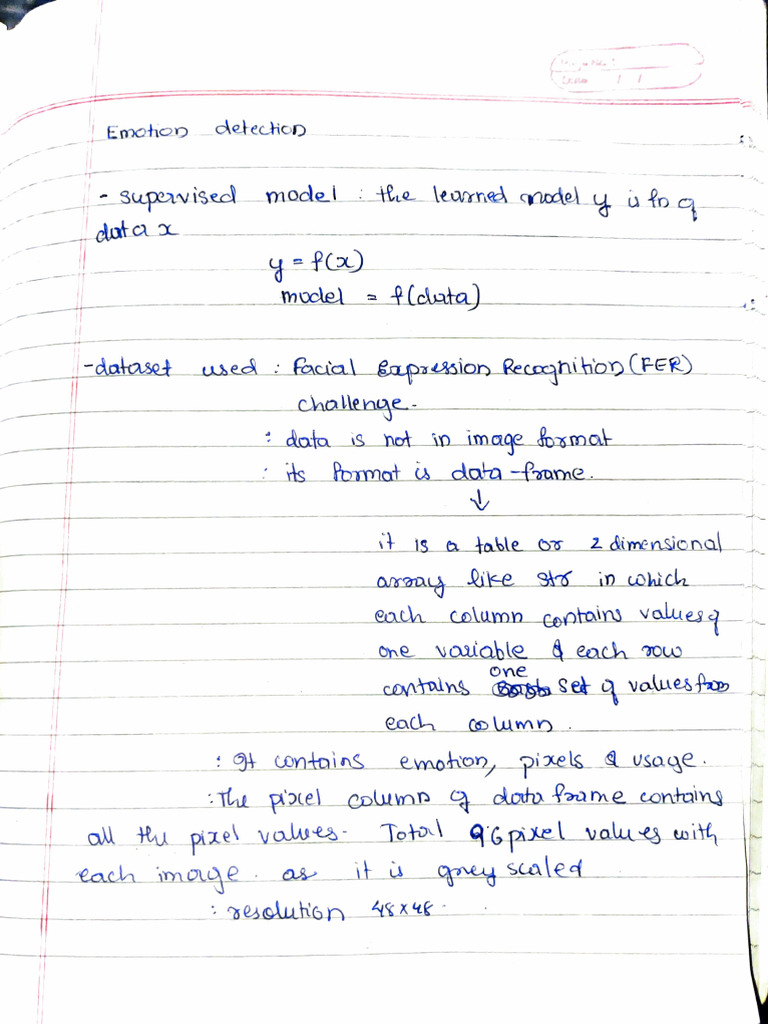 Emotion detection
- supervised model : the learned model y is fn of
data x
y = f(x)
model = f(data)
- dataset used : Facial Expression Recognition (FER)
challenge.
: data is not in image format
: its format is data-frame.
↓
it is a table or 2 dimensional
array like str in which
each column contains values of
one variable & each row
one
contains set of values from
each column.
: It contains emotion, pixels & usage.
: The pixel column of data frame contains
all the pixel values. Total 96 pixel values with
each image. as it is grey scaled
: resolution 48 x 48.